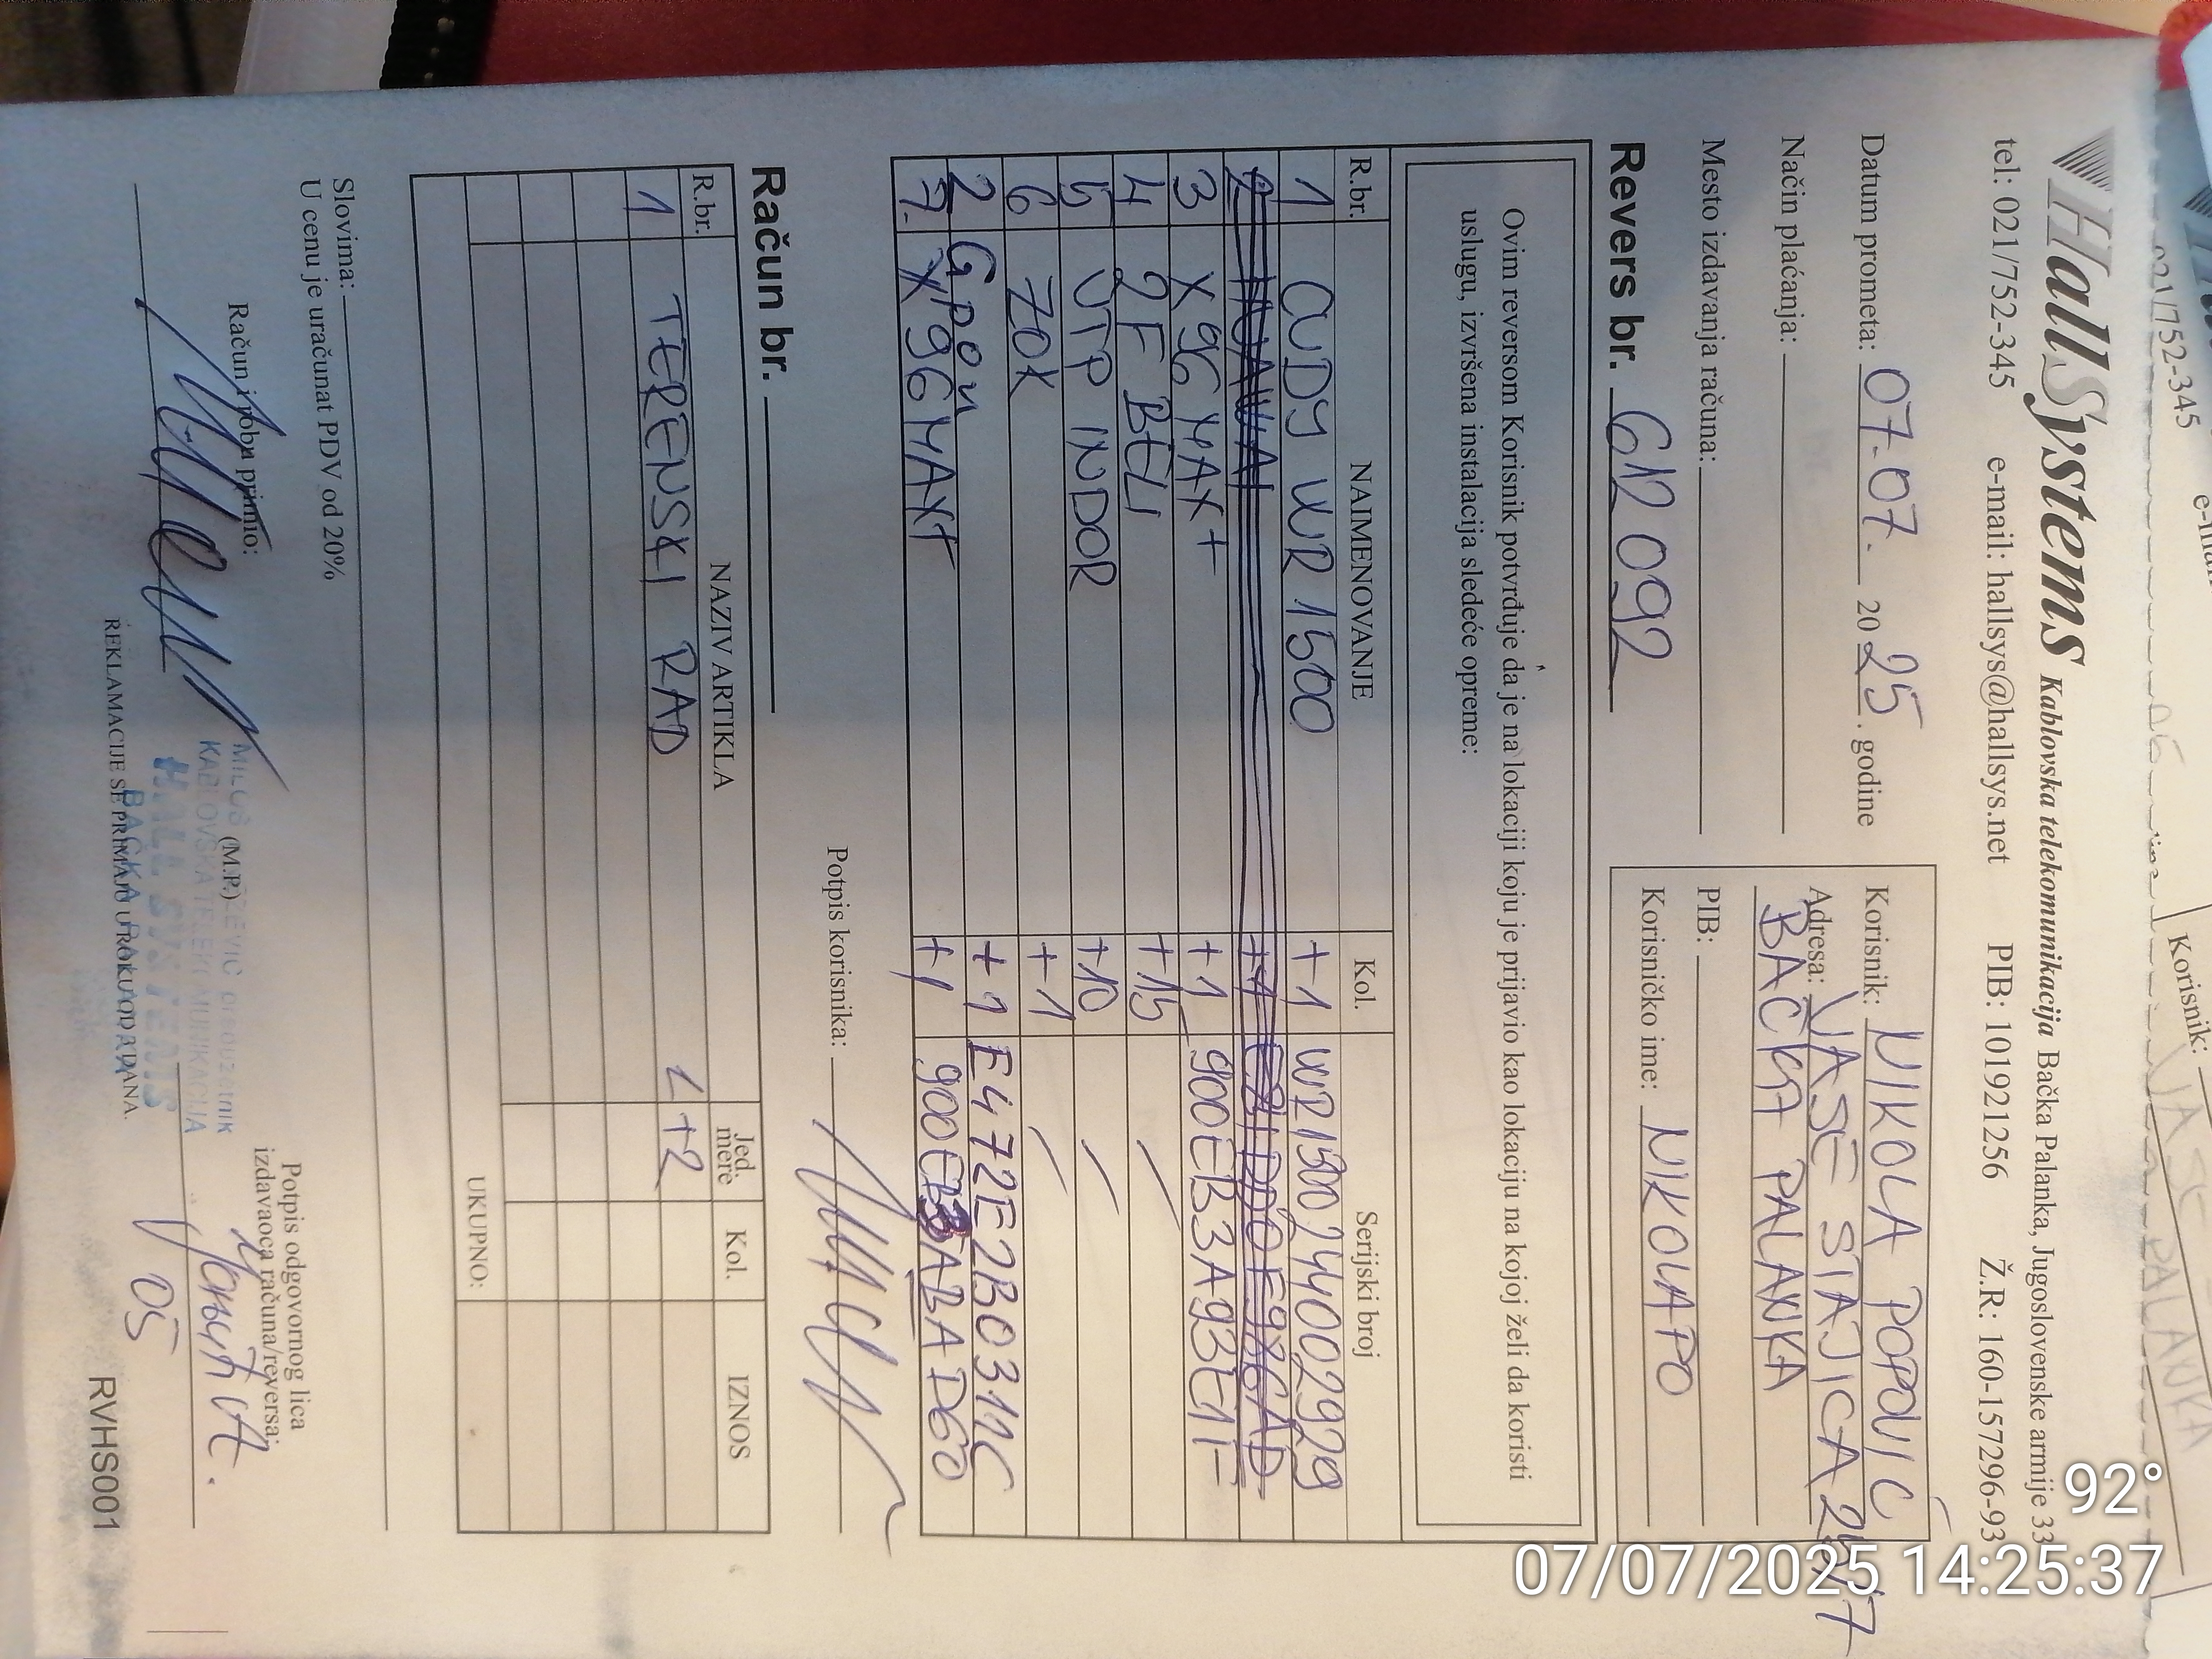 HallSystems Kablovska telekomunikacija Bačka Palanka, Jugoslovenske armije 33
tel: 021/752-345 e-mail: hallsys@hallsys.net PIB: 101921256 Ž.R: 160-157296-93
Datum prometa: 07.07. 2025. godine
Način plaćanja:
Mesto izdavanja računa:
Korisnik: NIKOLA POPOVIĆ
Adresa: VASE STAJIĆA
BAČKA PALANKA
PIB:
Korisničko ime: NIKOLAPO
Revers br. 612 092
Ovim reversom Korisnik potvrđuje da je na lokaciji koju je prijavio kao lokaciju na kojoj želi da koristi
uslugu, izvršena instalacija sledeće opreme:
R.br. NAIMENOVANJE Kol. Serijski broj
1 CUDY WR 1500 +1 WR1500244002929
3 X96 MAX+ +1 900EB3A93E1F
4 2F BELI +15 /
5 UTP INDOR +10 /
6 70K +1 /
2 Gpon +1 E472E2B0311C
7. X96MAX+ +1 900EB3ABAD60
Potpis korisnika:
Račun br.
R.br. NAZIV ARTIKLA Jed. mere Kol. IZNOS
1 TERENSKI RAD <+2
UKUPNO:
Slovima:
U cenu je uračunat PDV od 20%
Račun i robu primio:
(M.P.)
Potpis odgovornog lica
izdavaoca računa/reversa:
05
KABLOVSKA TELEKOMUNIKACIJA
HALL SYSTEMS
BAČKA PALANKA
REKLAMACIJE SE PRIMAJU U ROKU OD 8 DANA.
RVHS001
021/752-345
Korisnik:
92°
07/07/2025 14:25:37